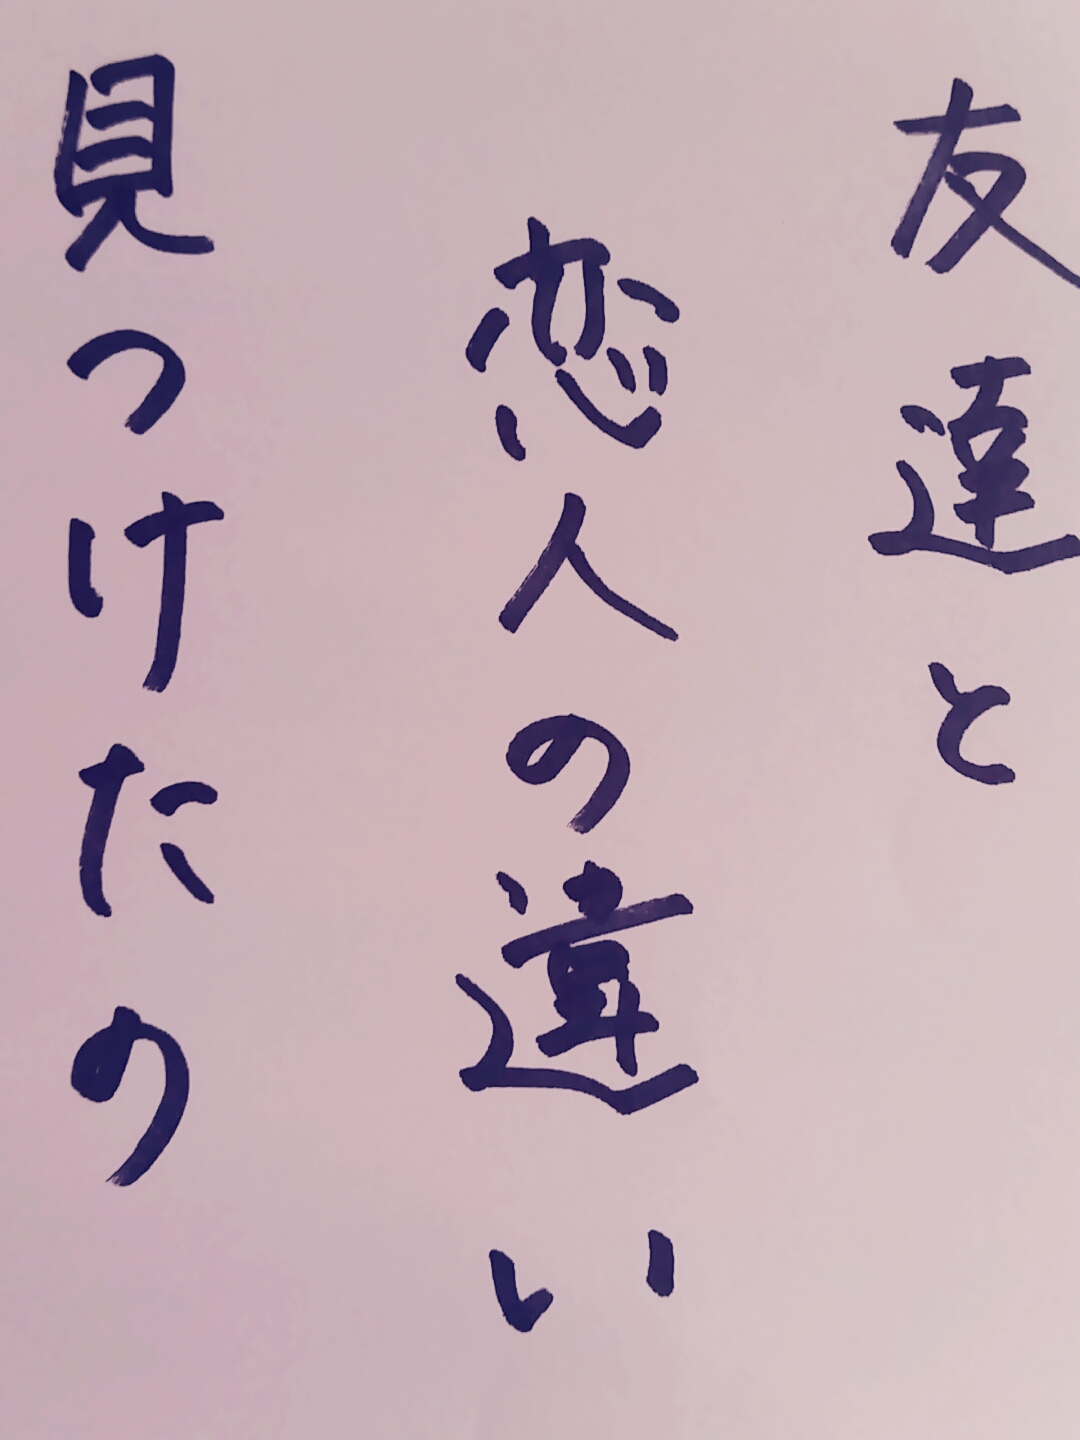 友達と
恋人の違い
見つけたの